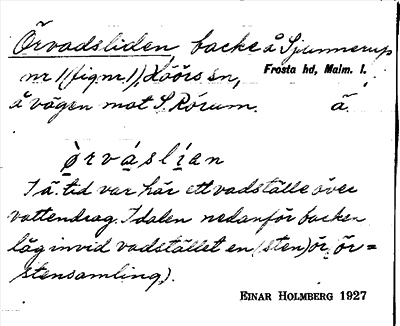 Örvadsliden, backe å Sjunnerup
nr 1 (fig nr 1), Höörs sn,
Frosta hd, Malm. l.
å vägen mot S. Rörum. ä.
ørváslían
I ä. tid var här ett vadställe över
vattendrag. I dalen nedanför backen
låg invid vadstället en (sten)ör, ör=
stensamling).
EINAR HOLMBERG 1927